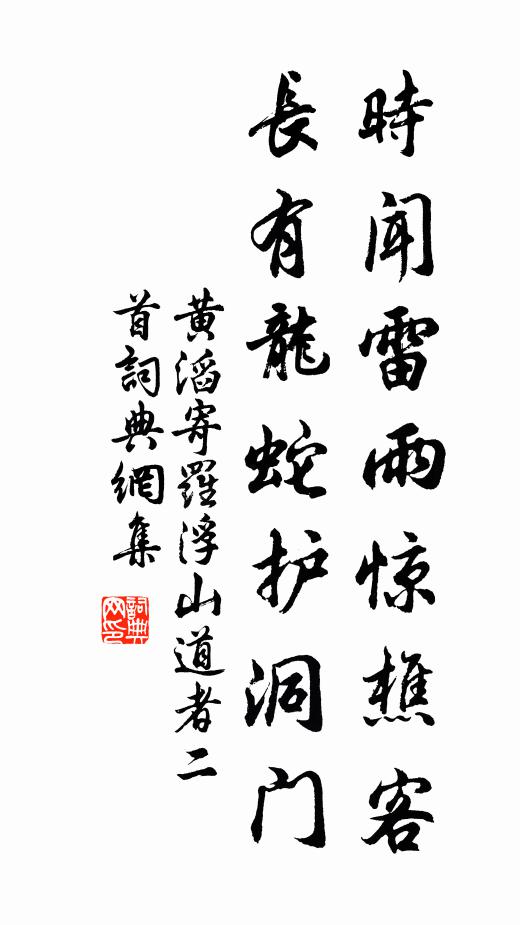 時闻雷雨惊樵客
長有龍蛇护洞门
黄滔寄羅浮山道者二
首詞典網集
詞典
网印